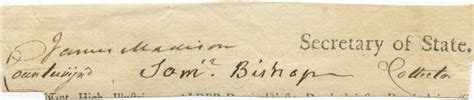 James Madison Secretary of State.
Countersign'd Sam.l Bishop Collector
High